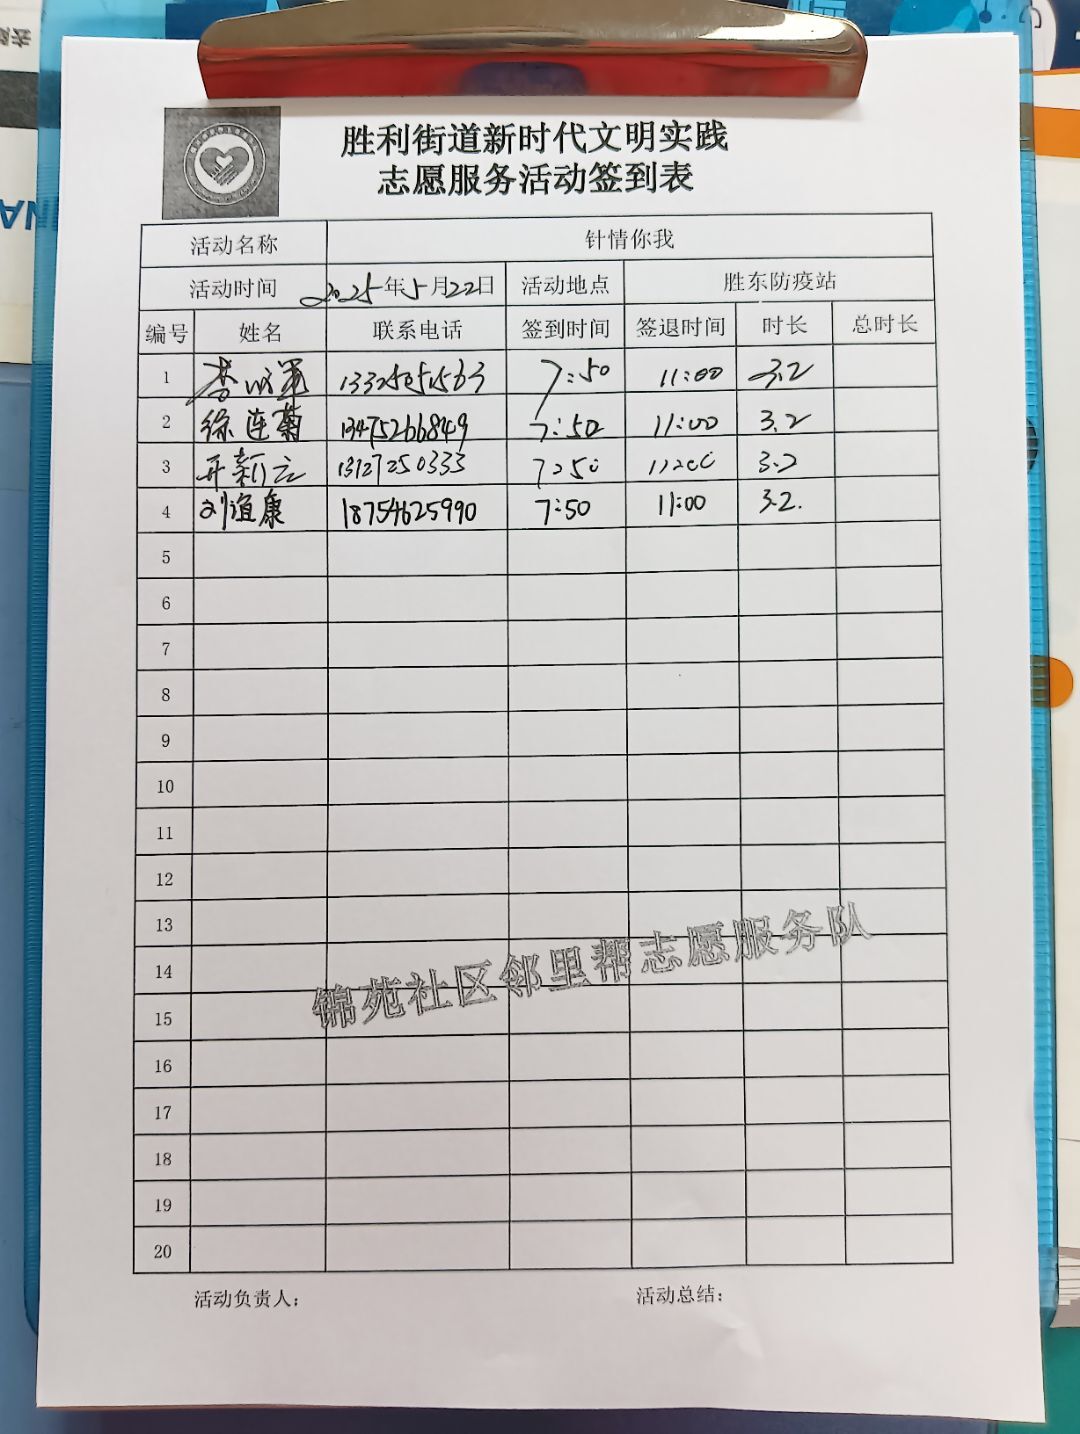 胜利街道新时代文明实践
志愿服务活动签到表
活动名称 针情你我
活动时间 2025年5月22日 活动地点 胜东防疫站
编号 姓名 联系电话 签到时间 签退时间 时长 总时长
1 7:50 11:00 3.2
2 徐连菊 13475266849 7:50 11:00 3.2
3 13127250333 7:50 11:00 3.2
4 刘谊康 18754625990 7:50 11:00 3.2.
5
6
7
8
9
10
11
12
13
14
锦苑社区邻里帮志愿服务队
15
16
17
18
19
20
活动负责人: 活动总结: